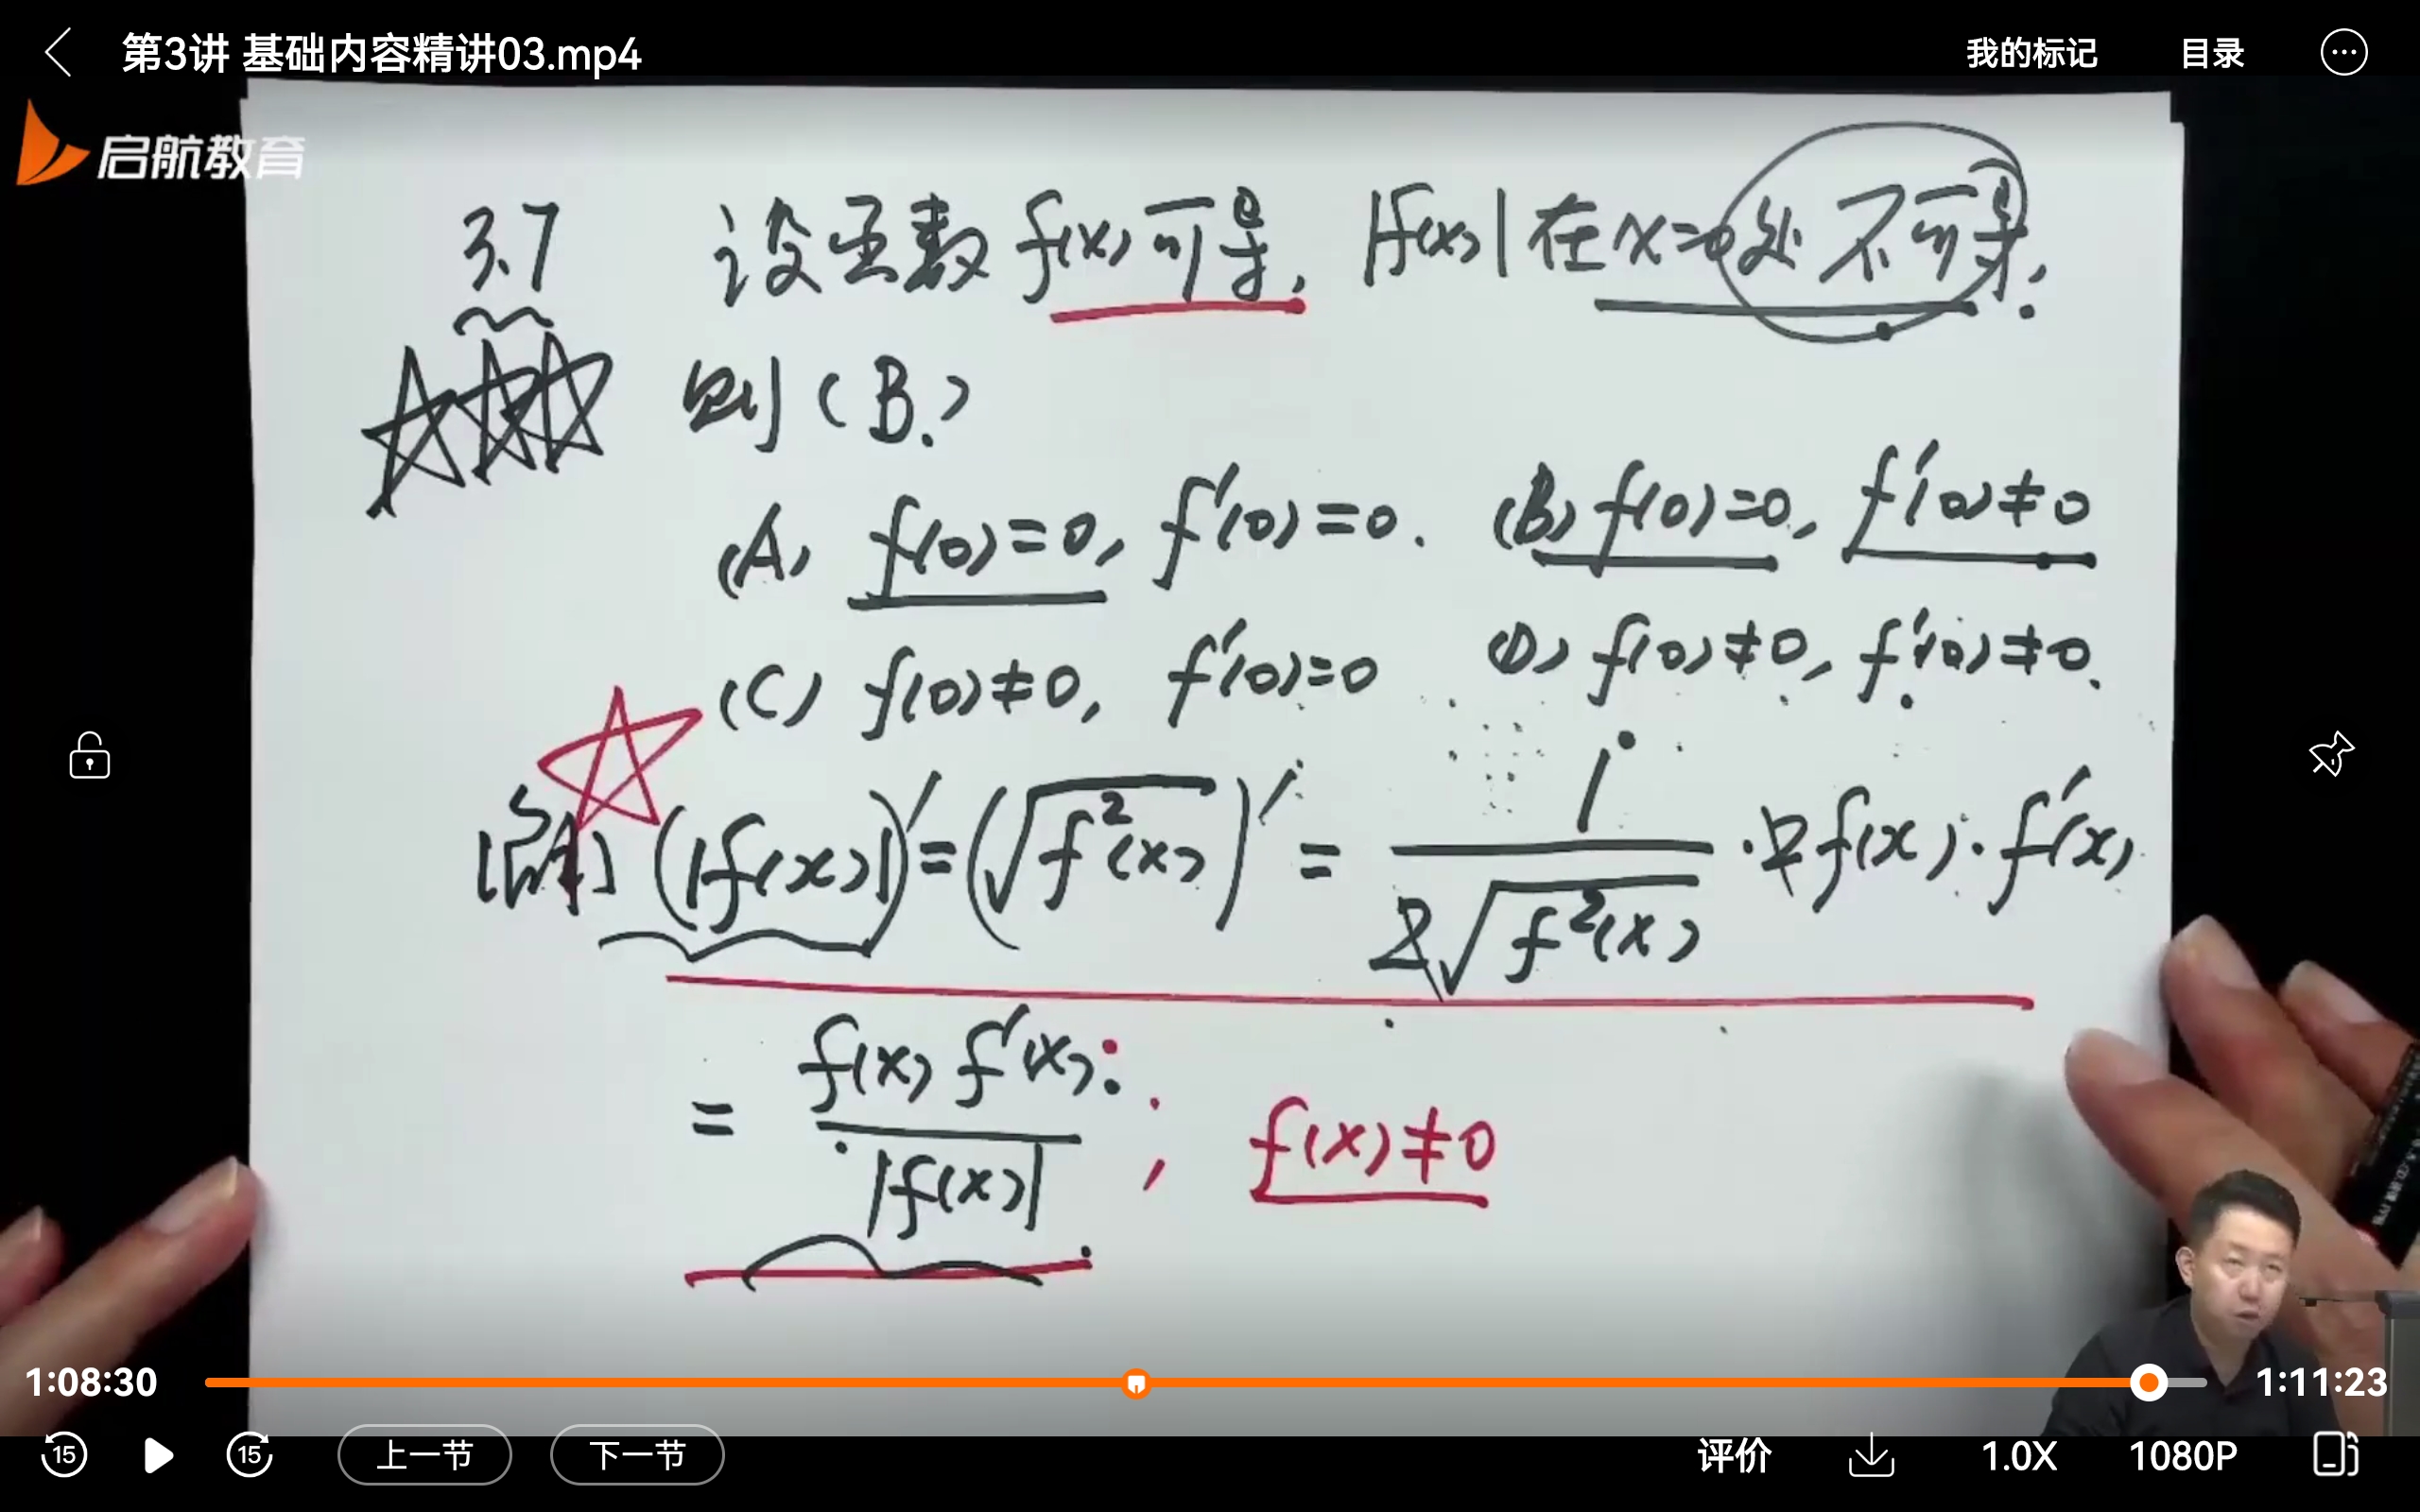 第3讲 基础内容精讲03.mp4
我的标记 目录
启航教育
3.7 设函数 f(x) 可导, |f(x)| 在 x=0 处不可导.
则 (B.)
(A) f(0)=0, f'(0)=0. (B) f(0)=0, f'(0)≠0
(C) f(0)≠0, f'(0)=0 (D) f(0)≠0, f'(0)≠0.
[解] (|f(x)|)' = (√f²(x))' = 1/(2√f²(x)) · 2f(x) · f'(x)
= f(x) f'(x) / |f(x)| ; f(x)≠0
1:08:30 1:11:23
15 15 上一节 下一节 评价 1.0X 1080P